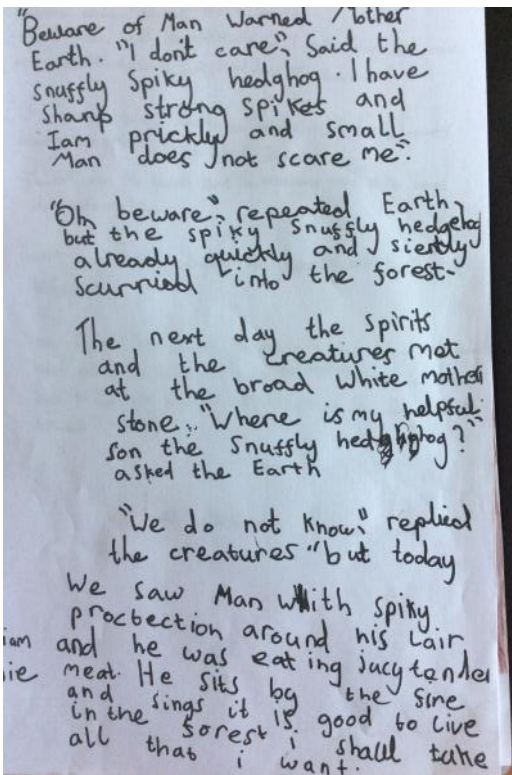 "Beware of Man Warned Mother
Earth. "I don't care", Said the
snuffly Spiky hedghog. I have
Sharp strong spikes and
Iam prickly and small
Man does not scare me".
"Oh beware", repeated Earth,
but the spiky snuffly hedgehog
already quickly and siently
scurried into the forest.
The next day the spirits
and the creatures met
at the broad White mother
stone. "Where is my helpful
son the Snuffly hedghog?"
asked the Earth
"We do not know," replied
the creatures "but today
We saw Man With spiky
procbection around his Lair
iam and he was eating jucy tender
ie meat. He sits by the fire
and sings it is good to live
in the forest i shall take
all that i want.